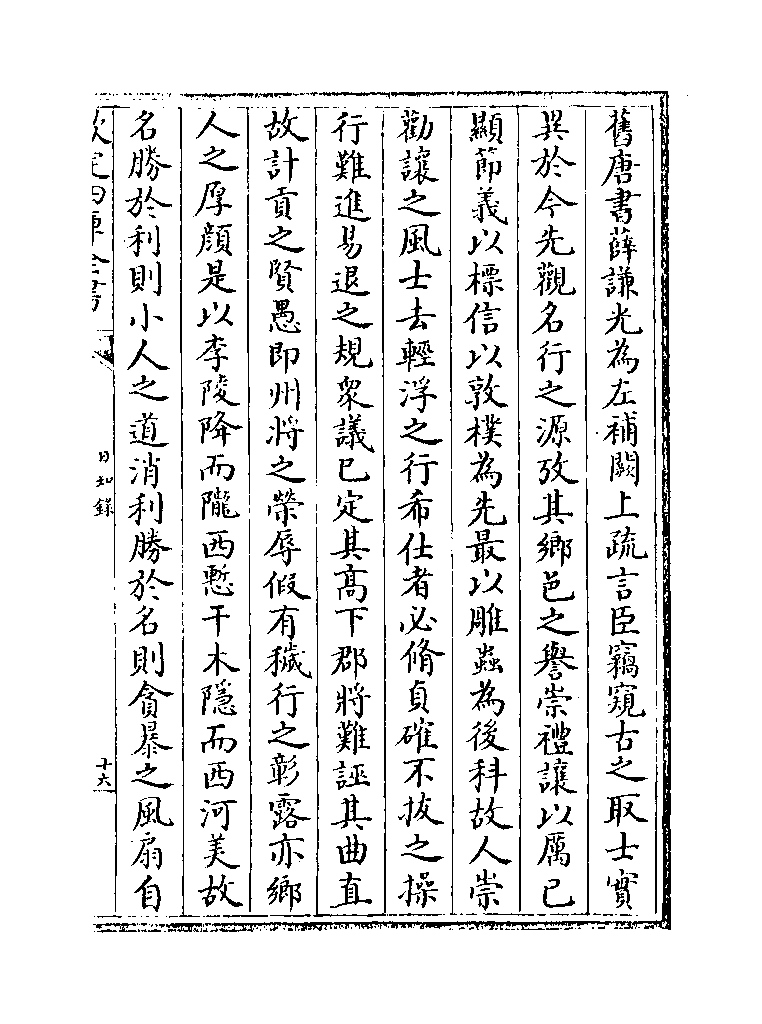 舊唐書薛謙光為左補闕上疏言臣竊窺古之取士實
異於今先觀名行之源攷其鄉邑之譽崇禮讓以厲已
顯節義以標信以敦樸為先最以雕蟲為後科故人崇
勸讓之風士去輕浮之行希仕者必脩貞確不拔之操
行難進易退之規衆議已定其髙下郡將難誣其曲直
故計貢之賢愚即州將之榮辱假有穢行之彰露亦鄉
人之厚顔是以李陵降而隴西慙干木隱而西河美故
名勝於利則小人之道消利勝於名則貪暴之風扇自
欽定四庫全書
日知錄
十六